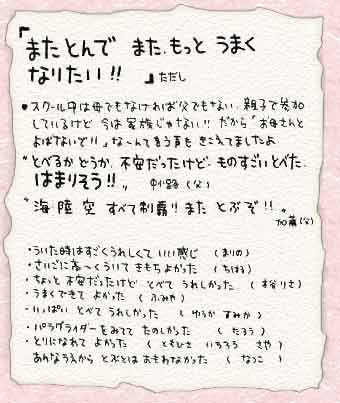 『またとんで また、もっと うまく
なりたい!!』ただし
●スクール中は母でもなければ父でもない、親子で参加
しているけど 今は家族じゃない!! だから"お母さんと
よばないで!!"な〜んて言う声も きこえてましたよ
"とべるかどうか、不安だったけど、ものすごいとべた、
はまりそう!!" (父)
"海 陸 空 すべて制覇!! また とぶぞ!!"
加藤(父)
・ういた時はすごくうれしくて いい感じ (まりの)
・さいごに高〜くういて きもちよかった (ちはる)
・ちょっと不安だったけど とべて うれしかった (本谷 りさ)
・うまくできて よかった (ふみや)
・いっぱい とべて うれしかった (ゆうか すみか)
・パラグライダーをみてて たのしかった (たろう)
・とりになれて よかった (ともひさ いちろう さや)
あんなうえから とぶとは おもわなかった (なつこ)